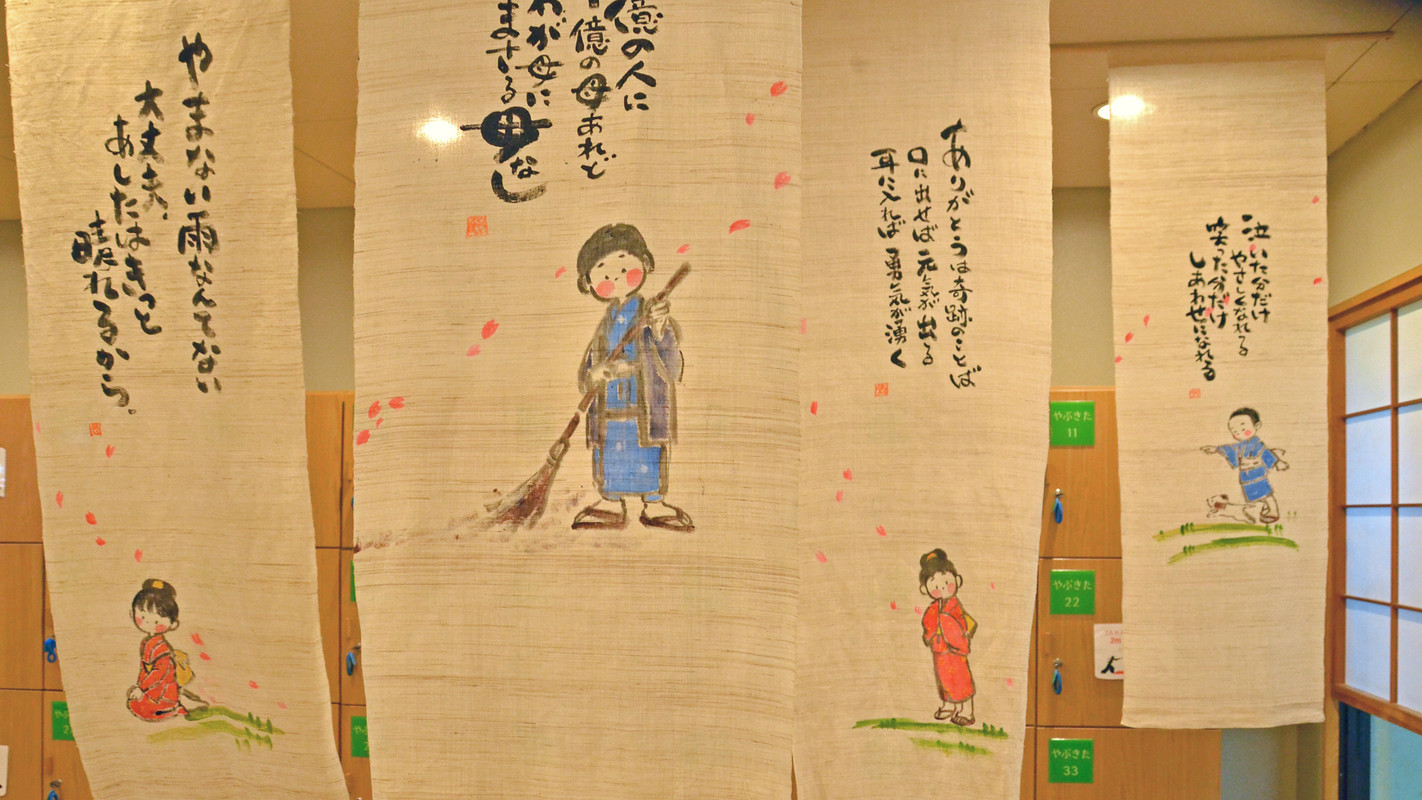 やまない雨なんてない
大丈夫、
あしたはきっと
晴れるから。
億の人に
億の母あれど
わが母に
まさる母なし
ありがとうは奇跡のことば
口に出せば元気が出る
耳に入れば勇気が湧く
泣いた分だけ
やさしくなれる
笑った分だけ
しあわせになれる
やぶきた
11
やぶきた
22
やぶきた
33